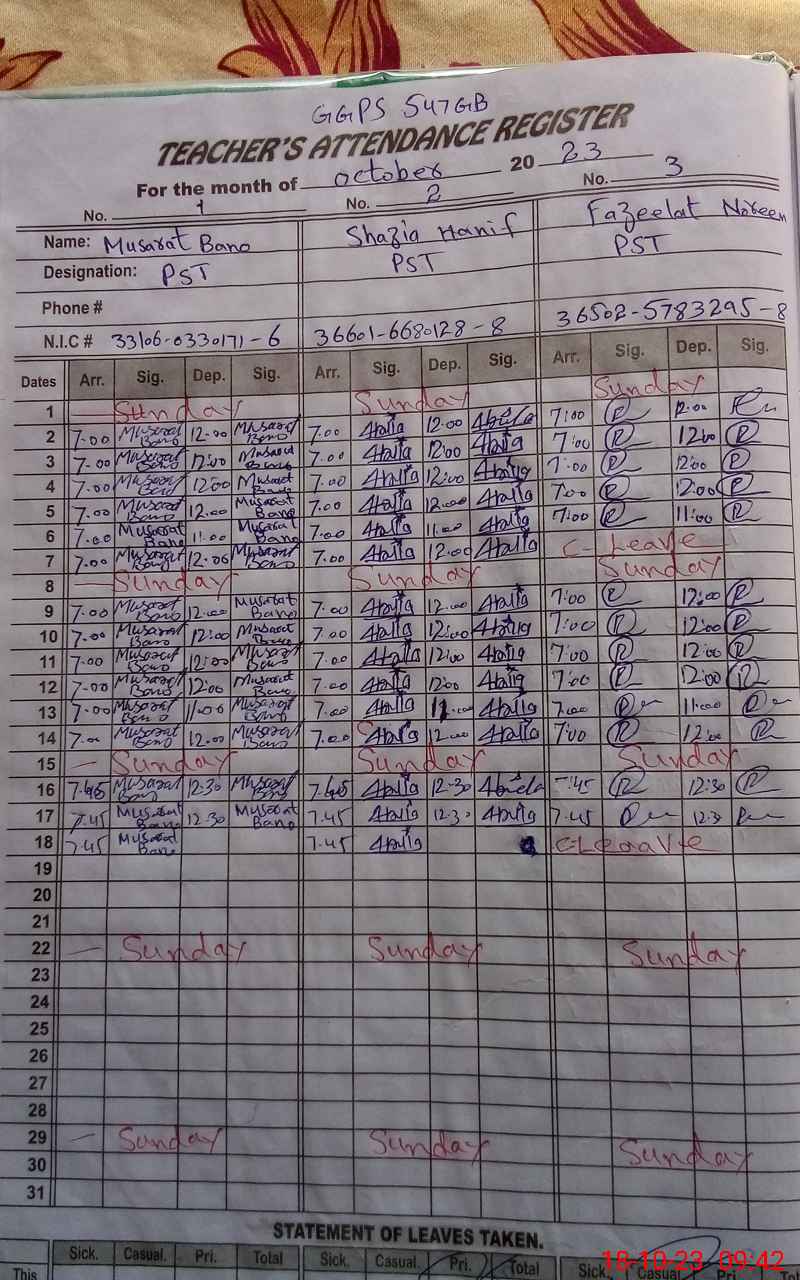 GGPS 547GB
TEACHER'S ATTENDANCE REGISTER
For the month of October 20 23
No. 1 No. 2 No. 3
Name: Musarat Bano Shazia Hanif Fazeelat Noreen
Designation: PST PST PST
Phone #
N.I.C # 33106-0330171-6 36601-6680128-8 36502-5783295-8
Dates Arr. Sig. Dep. Sig. Arr. Sig. Dep. Sig. Arr. Sig. Dep. Sig.
1 Sunday Sunday Sunday
2 7.00 Musarat Bano 12.00 Musarat Bano 7.00 12.00 7:00 12.00
3 7.00 Musarat Bano 12:00 Musarat Bano 7.00 12:00 7:00 12:00
4 7.00 Musarat Bano 12:00 Musarat Bano 7.00 12:00 7:00 12:00
5 7.00 Musarat Bano 12.00 Musarat Bano 7.00 12.00 7:00 12:00
6 7.00 Musarat Bano 11.00 Musarat Bano 7.00 11.00 7:00 11:00
7 7.00 Musarat Bano 12.00 Musarat Bano 7.00 12.00 C-Leave
8 Sunday Sunday Sunday
9 7.00 Musarat Bano 12.00 Musarat Bano 7.00 12.00 7:00 12:00
10 7.00 Musarat Bano 12:00 Musarat Bano 7.00 12:00 7:00 12:00
11 7.00 Musarat Bano 12:00 Musarat Bano 7.00 12:00 7:00 12:00
12 7.00 Musarat Bano 12:00 Musarat Bano 7.00 12:00 7:00 12:00
13 7.00 Musarat Bano 11.00 Musarat Bano 7.00 11.00 7:00 11:00
14 7.00 Musarat Bano 12.00 Musarat Bano 7.00 12.00 7:00 12:00
15 Sunday Sunday Sunday
16 7.45 Musarat Bano 12.30 Musarat Bano 7.45 12.30 7:45 12:30
17 7.45 Musarat Bano 12.30 Musarat Bano 7.45 12.30 7.45 12.30
18 7.45 Musarat Bano 7.45 C-Leaave
19
20
21
22 Sunday Sunday Sunday
23
24
25
26
27
28
29 Sunday Sunday Sunday
30
31
STATEMENT OF LEAVES TAKEN.
This Sick. Casual. Pri. Total Sick. Casual. Pri. Total Sick. Casual Pri. Total
18-10-23 09:42